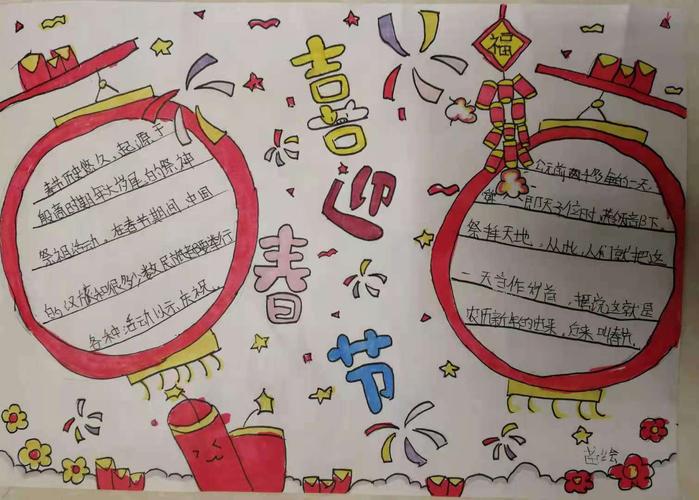 喜迎
春节
福
春节历史悠久、起源于
殷商时期年头岁尾的祭神
祭祖活动。在春节期间,中国
的汉族和很多少数民族都要举行
各种活动以示庆祝。
公元前两千多年的一天,
舜 即天子位时,带领部下,
祭拜天地,从此,人们就把这
一天当作岁首,据说这就是
农历新年的由来,后来叫春节.